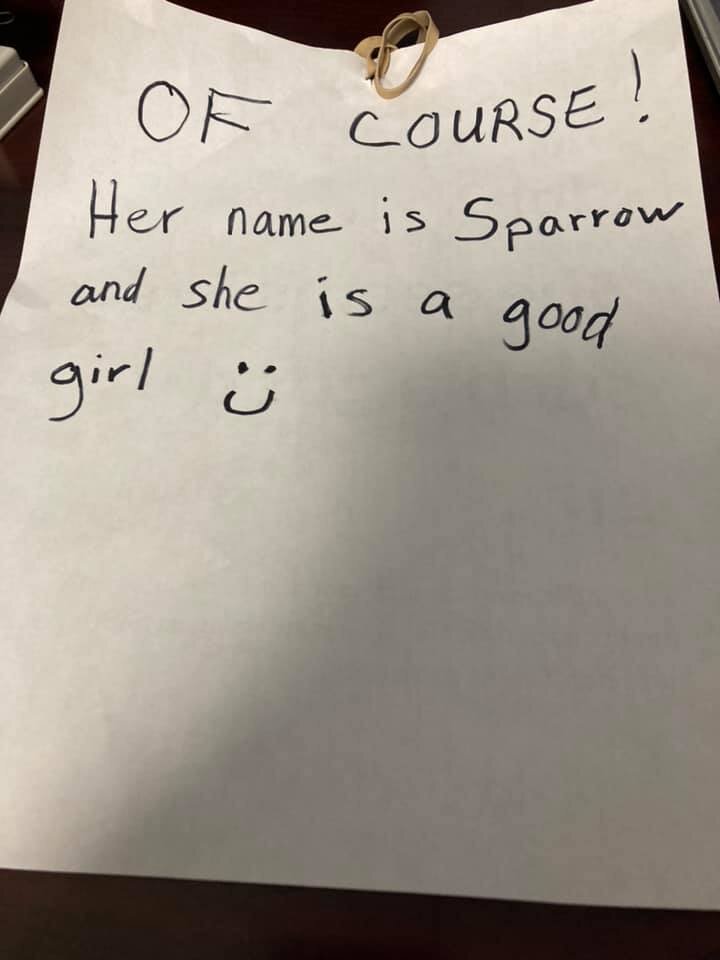 OF COURSE!
Her name is Sparrow
and she is a good
girl :)